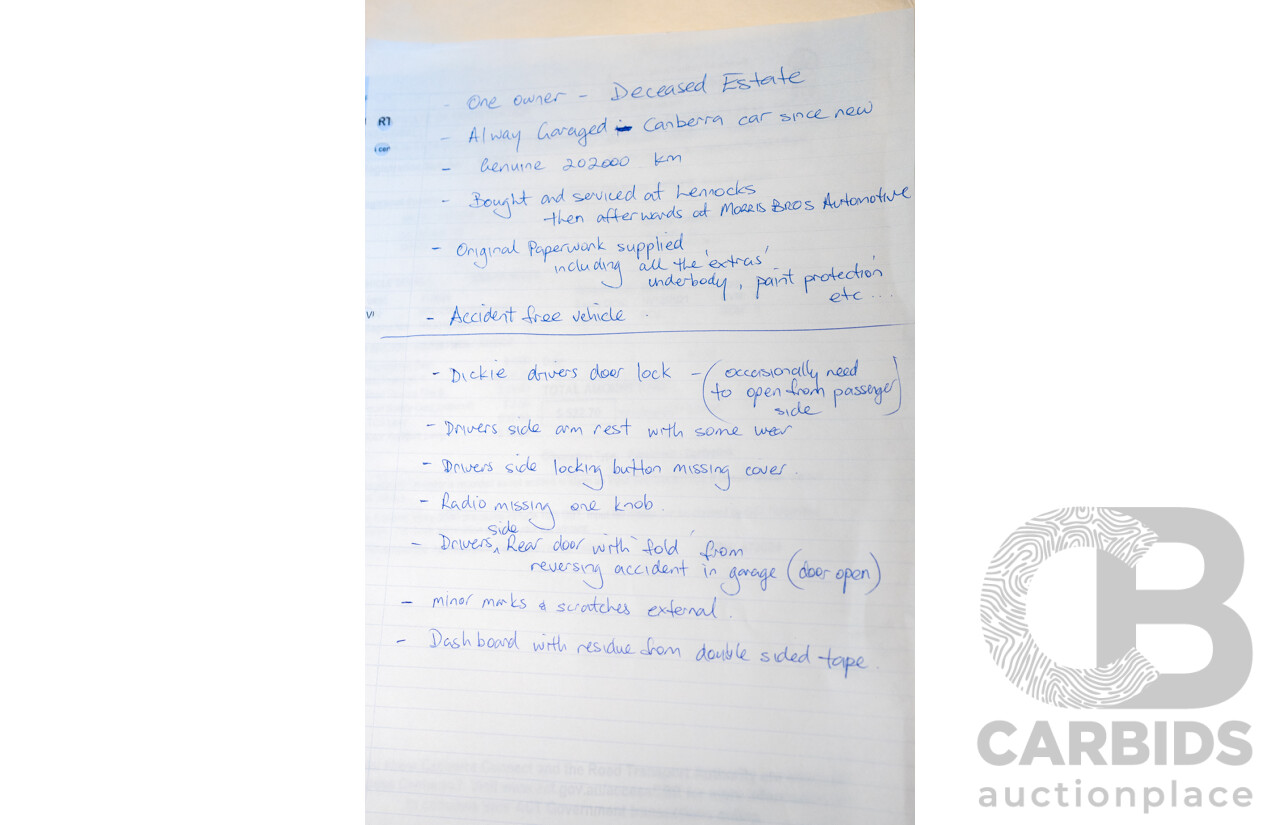 - One owner - Deceased Estate
R1
- Alway Garaged Canberra car since new
i car
- Genuine 202000 km
- Bought and serviced at Lennocks
then afterwards at MORRIS BROS Automotive
- Original Paperwork supplied
including all the 'extras'
underbody, paint protection
etc...
VI
- Accident free vehicle.
- Dickie drivers door lock - (occasionally need
to open from passenger
side)
- Drivers side arm rest with some wear
- Drivers side locking button missing cover.
- Radio missing one knob.
side
- Drivers ^ Rear door with 'fold' from
reversing accident in garage (door open)
- minor marks & scratches external.
- Dashboard with residue from double sided tape.
CB
CARBIDS
auctionplace